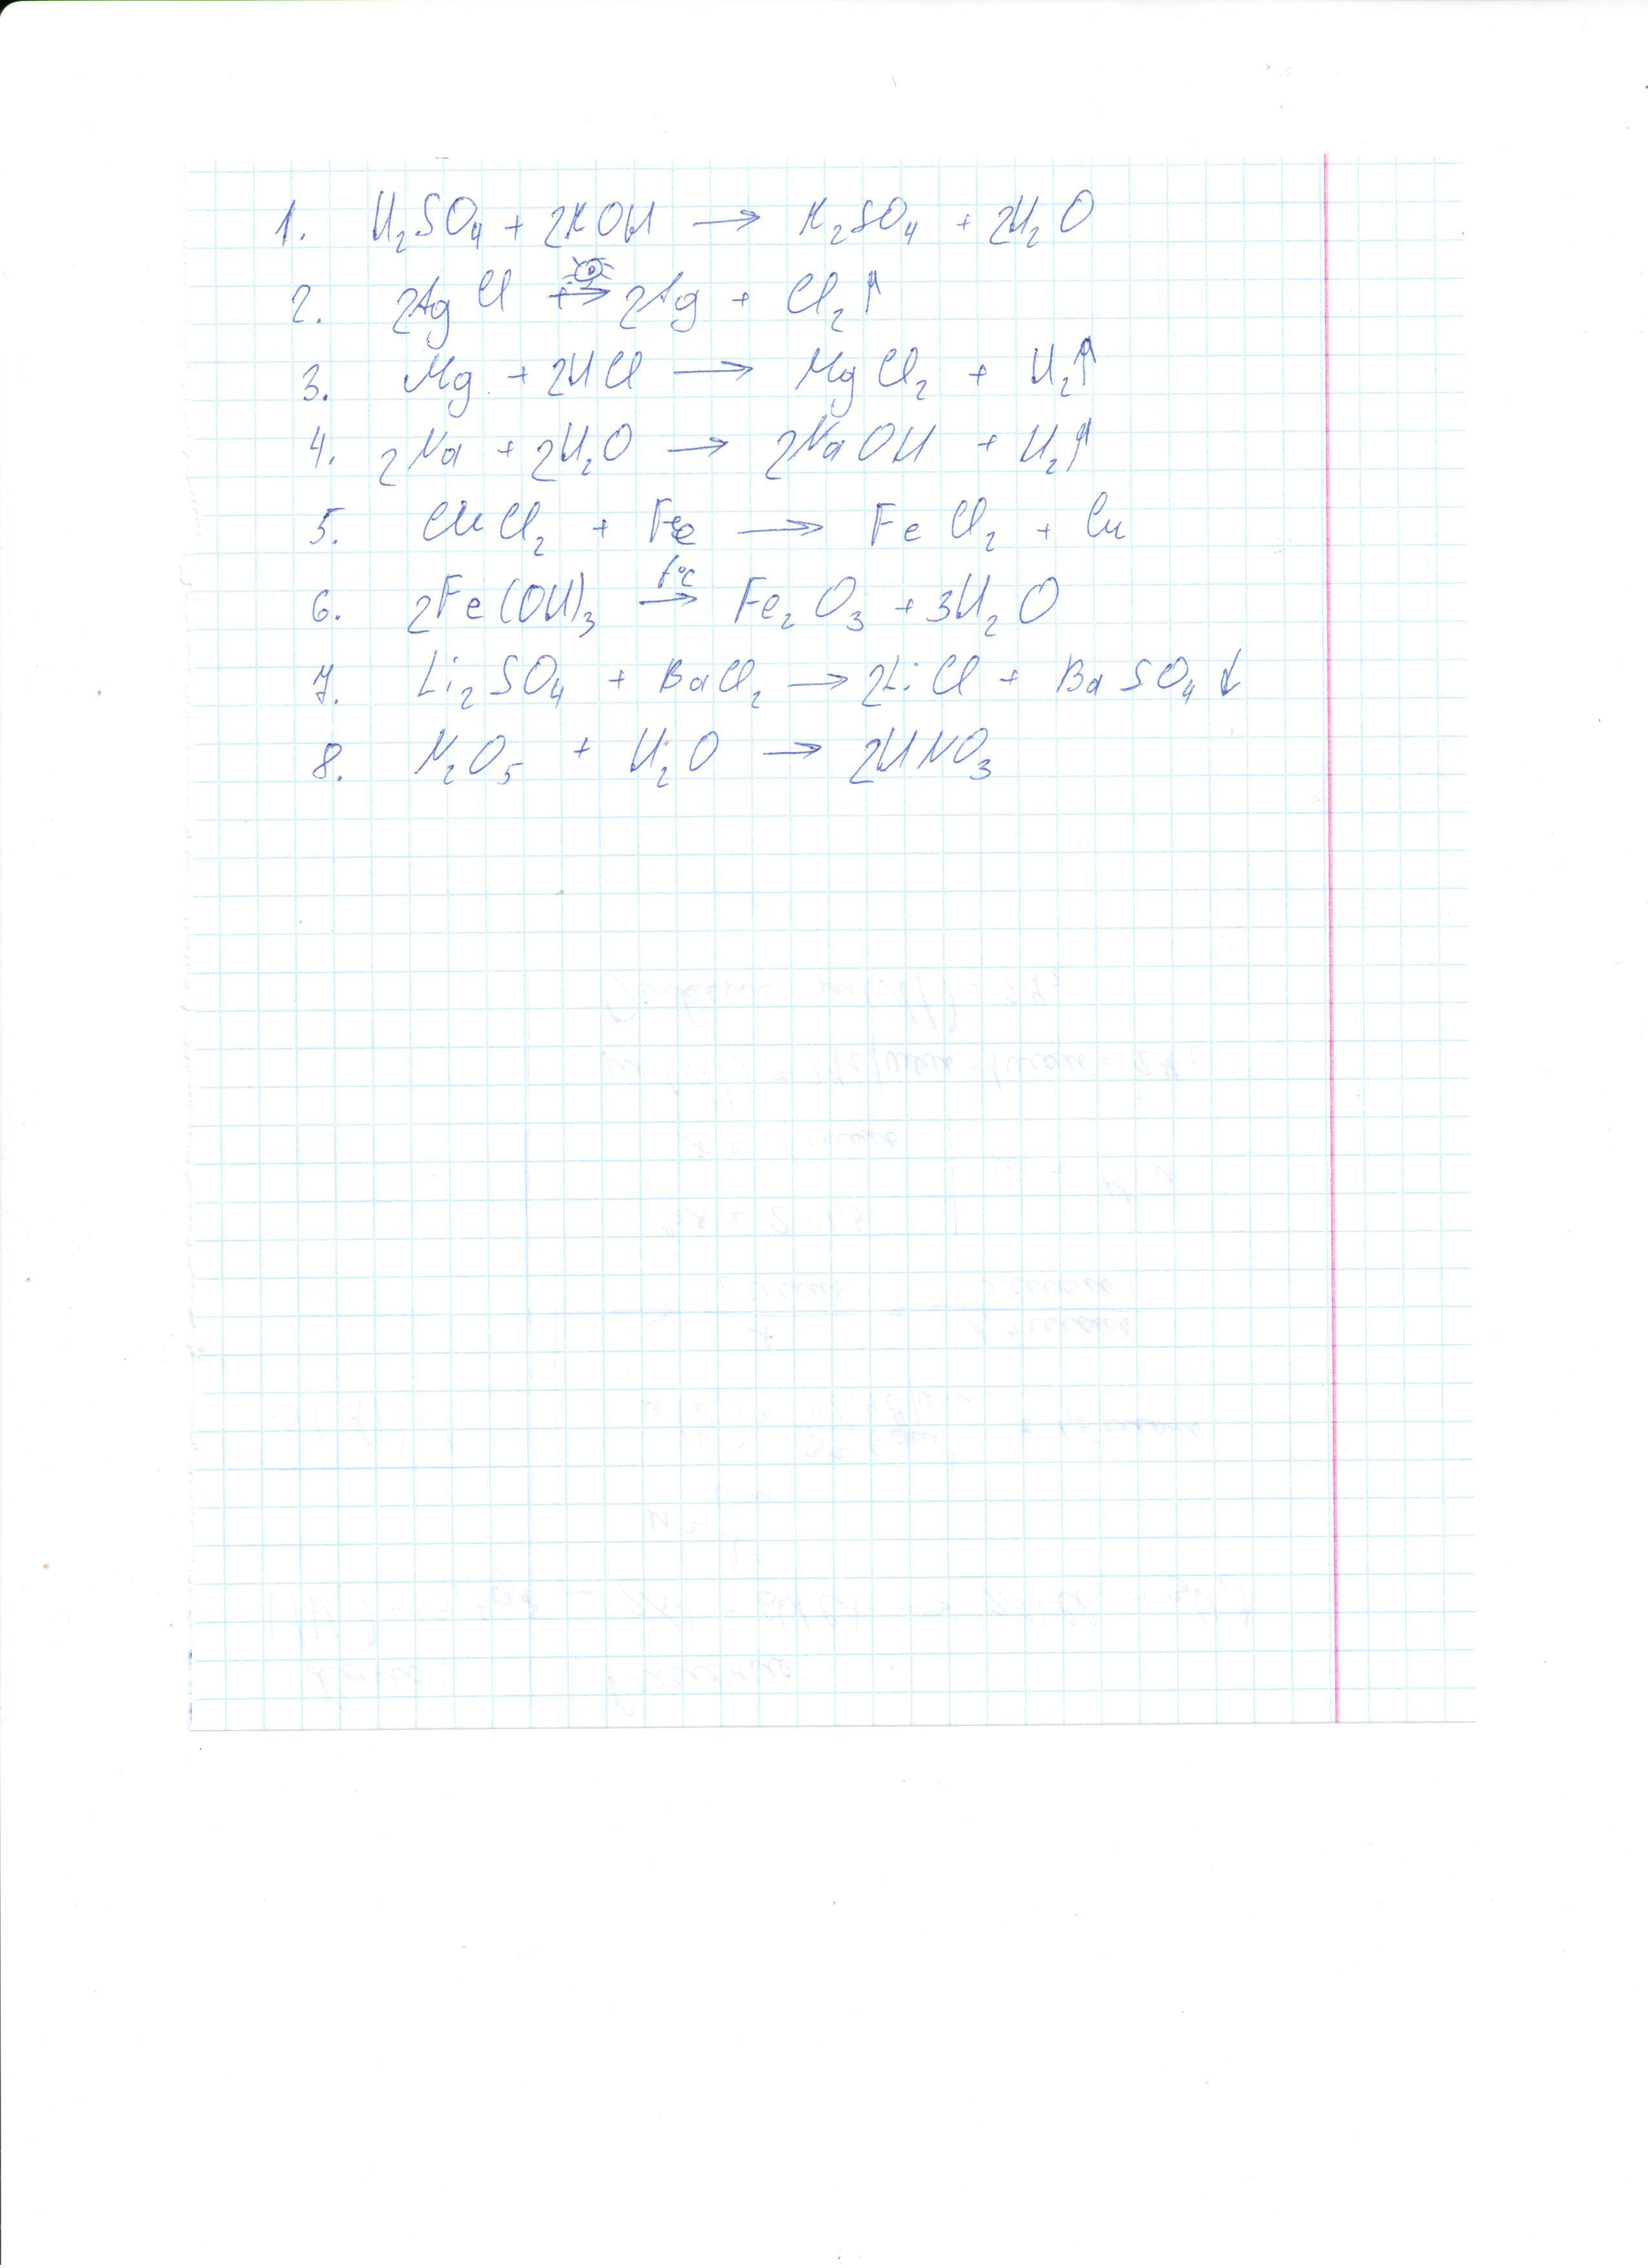 1. H₂SO₄ + 2KOH → K₂SO₄ + 2H₂O
2. 2AgCl → 2Ag + Cl₂↑
3. Mg + 2HCl → MgCl₂ + H₂↑
4. 2Na + 2H₂O → 2NaOH + H₂↑
5. CuCl₂ + Fe → FeCl₂ + Cu
6. 2Fe(OH)₃ t°C → Fe₂O₃ + 3H₂O
7. Li₂SO₄ + BaCl₂ → 2LiCl + BaSO₄↓
8. N₂O₅ + H₂O → 2HNO₃